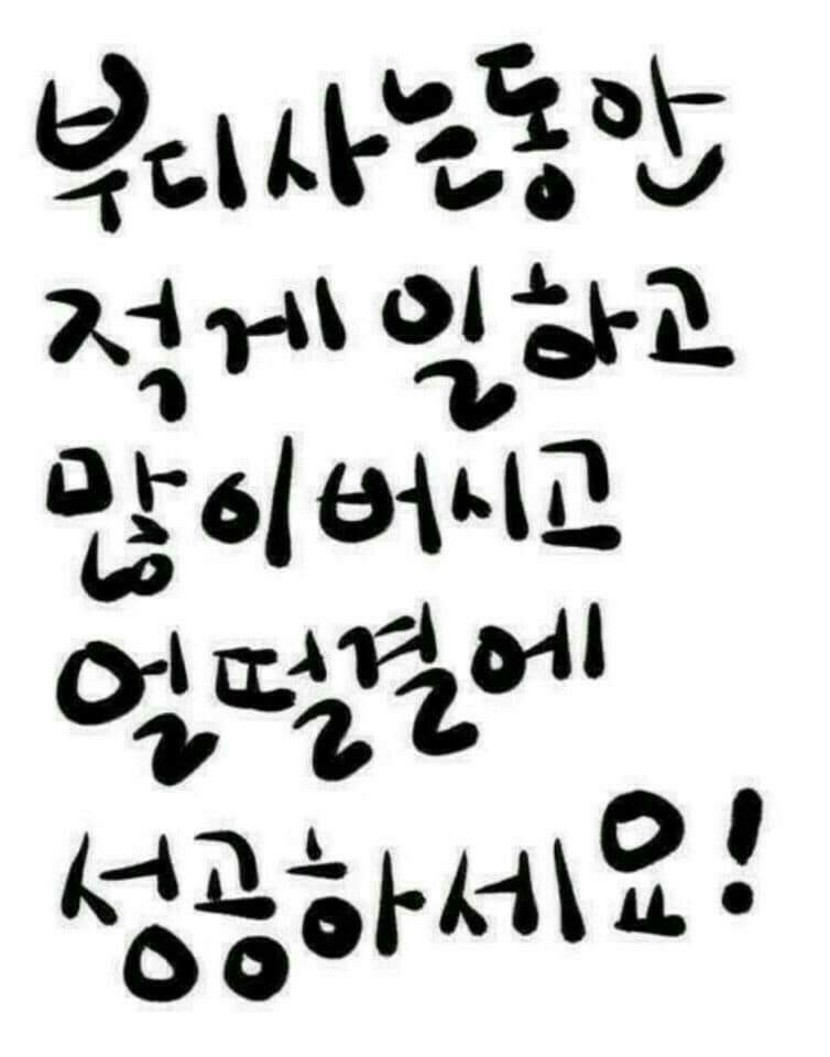 부디사는동안
적게 일하고
많이버시고
얼떨결에
성공하세요!